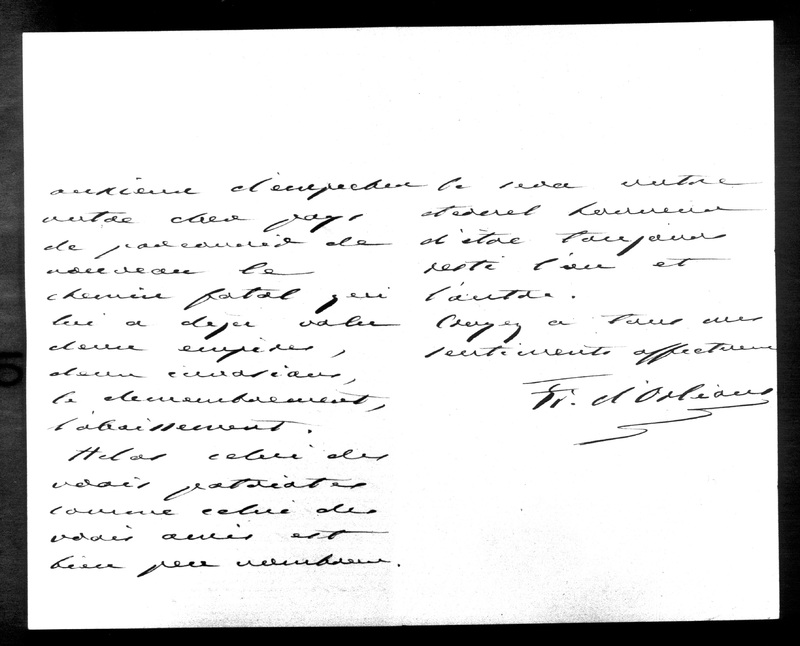 anxieux d'empecher
notre cher pays
de parcourir de
nouveau le
chemin fatal qui
lui a deja valu
deux empires,
deux invasions,
le demembrement,
l'abaissement.
Helas celui des
vrais patriotes
comme celui des
vrais amis est
bien peu nombreux.
Ce sera votre
eternel honneur
d'être toujours
resté l'un et
l'autre.
Croyez a tous mes
sentiments affectueux
Fr. d'Orléans